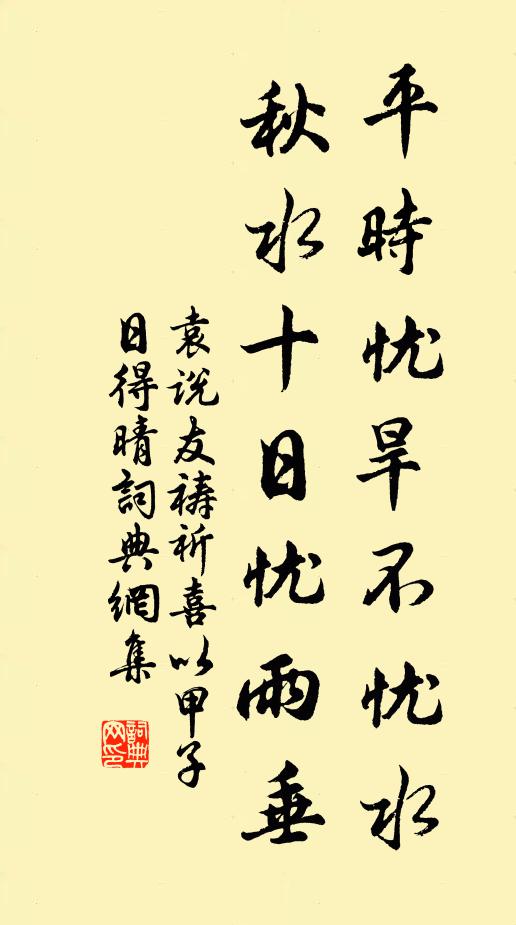 平時忧旱不忧水
秋水十日忧雨垂
袁説友禱祈喜以甲子
日得晴詞典網集
詞典
网印